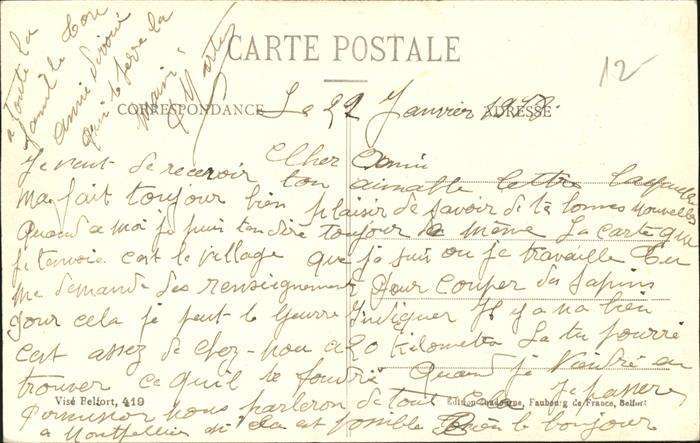 CARTE POSTALE
CORRESPONDANCE
ADRESSE
12
Le 22 Janvier
Cher Amis
Je vient de recevoir ton aimable lettre laquelle
Ma fait toujour bien plaisir de savoir de tes bonnes nouvelles
Quand a moi je puis ten dire toujour de même La carte que
je tenvoie cest le village que je suis ou je travaille Tu
me demande des renseignement pour couper des sapins
pour cela je peut le Gueurre indiquer Il y a na bien
cest assez de chez-nou a 20 kilometre La tu pourré
trouver ce quil te foudré Quand je viendré en
Permission nous parleron de tout cela je passere
a Montpellier si cela est possible Bien le bonjour
a toute la
famille Ton
amie dévoué
qui te serre la
main
Visé Belfort, 419
Edition Chadourne, Faubourg de France, Belfort